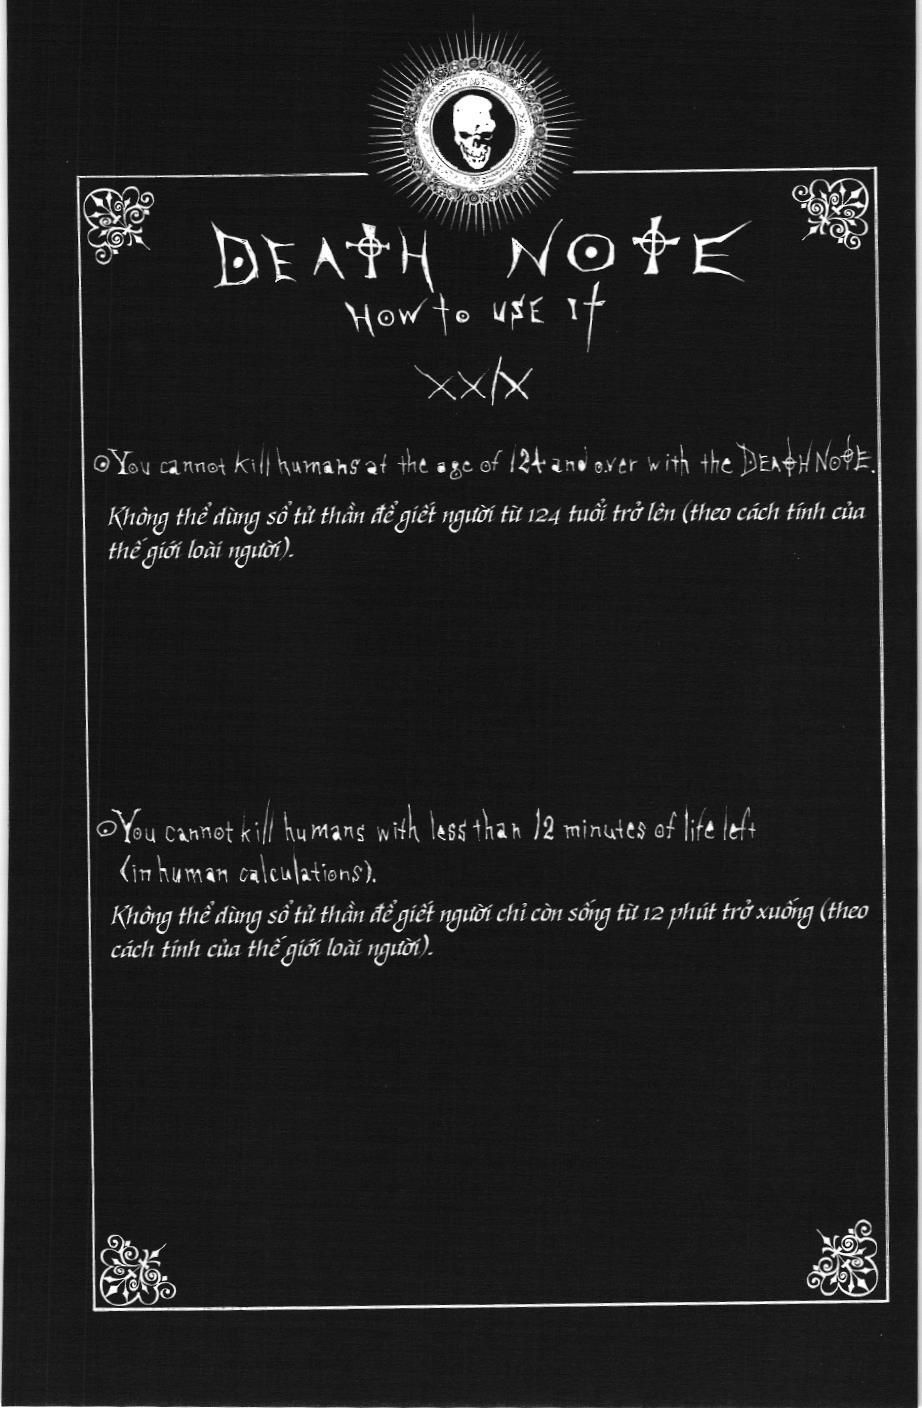 DEATH NOTE
HOW to USE It
XXIX
You cannot kill humans at the age of 124 and over with the DEATH NOTE.
Không thể dùng sổ tử thần để giết người từ 124 tuổi trở lên (theo cách tính của
thế giới loài người).
You cannot kill humans with less than 12 minutes of life left
(in human calculations).
Không thể dùng sổ tử thần để giết người chỉ còn sống từ 12 phút trở xuống (theo
cách tính của thế giới loài người).